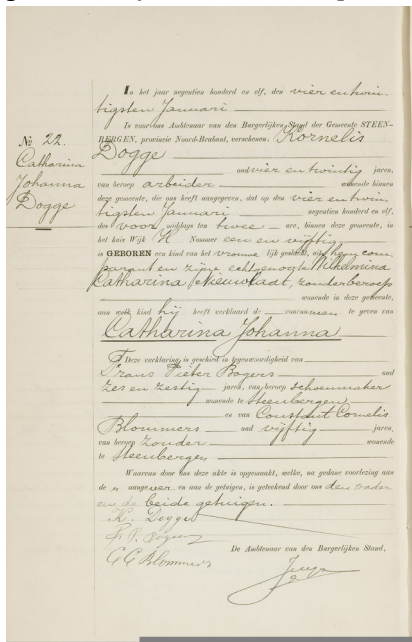 In het jaar negentien honderd en elf, den vier en twin
tigsten Januari
is voor ons Ambtenaar van den Burgerlijken Stand der Gemeente STEEN-
BERGEN, provincie Noord-Brabant, verschenen: Kornelis
Dogge
No 22.
Catharina
Johanna
Dogge
oud vier en twintig jaren,
van beroep arbeider wonende binnen
deze gemeente, die ons heeft aangegeven, dat op den vier en twin
tigsten Januari negentien honderd en elf,
des voor middags ten twee ure, binnen deze gemeente, in
het huis Wijk H Nummer een en vijftig
is GEBOREN een kind van het vrouwe lijk geslacht, uit hem com
parant en zijne echtgenoote Wilhelmina
Catharina Nieuwstadt, zonder beroep
wonende in deze gemeente,
aan welk kind hij heeft verklaard de voornamen te geven van
Catharina Johanna
Deze verklaring is geschied in tegenwoordigheid van
Frans Pieter Bogers oud
zes en zestig jaren, van beroep schoenmaker
wonende te Steenbergen
en van Constant Cornelis
Blommers oud vijftig jaren,
van beroep zonder wonende
te Steenbergen
Waarvan door ons deze akte is opgemaakt, welke, na gedane voorlezing aan
de aangever en aan de getuigen, is geteekend door ons den vader
en de beide getuigen.
K. Dogge
F. P. Bogers
C C Blommers
De Ambtenaar van den Burgerlijken Stand,